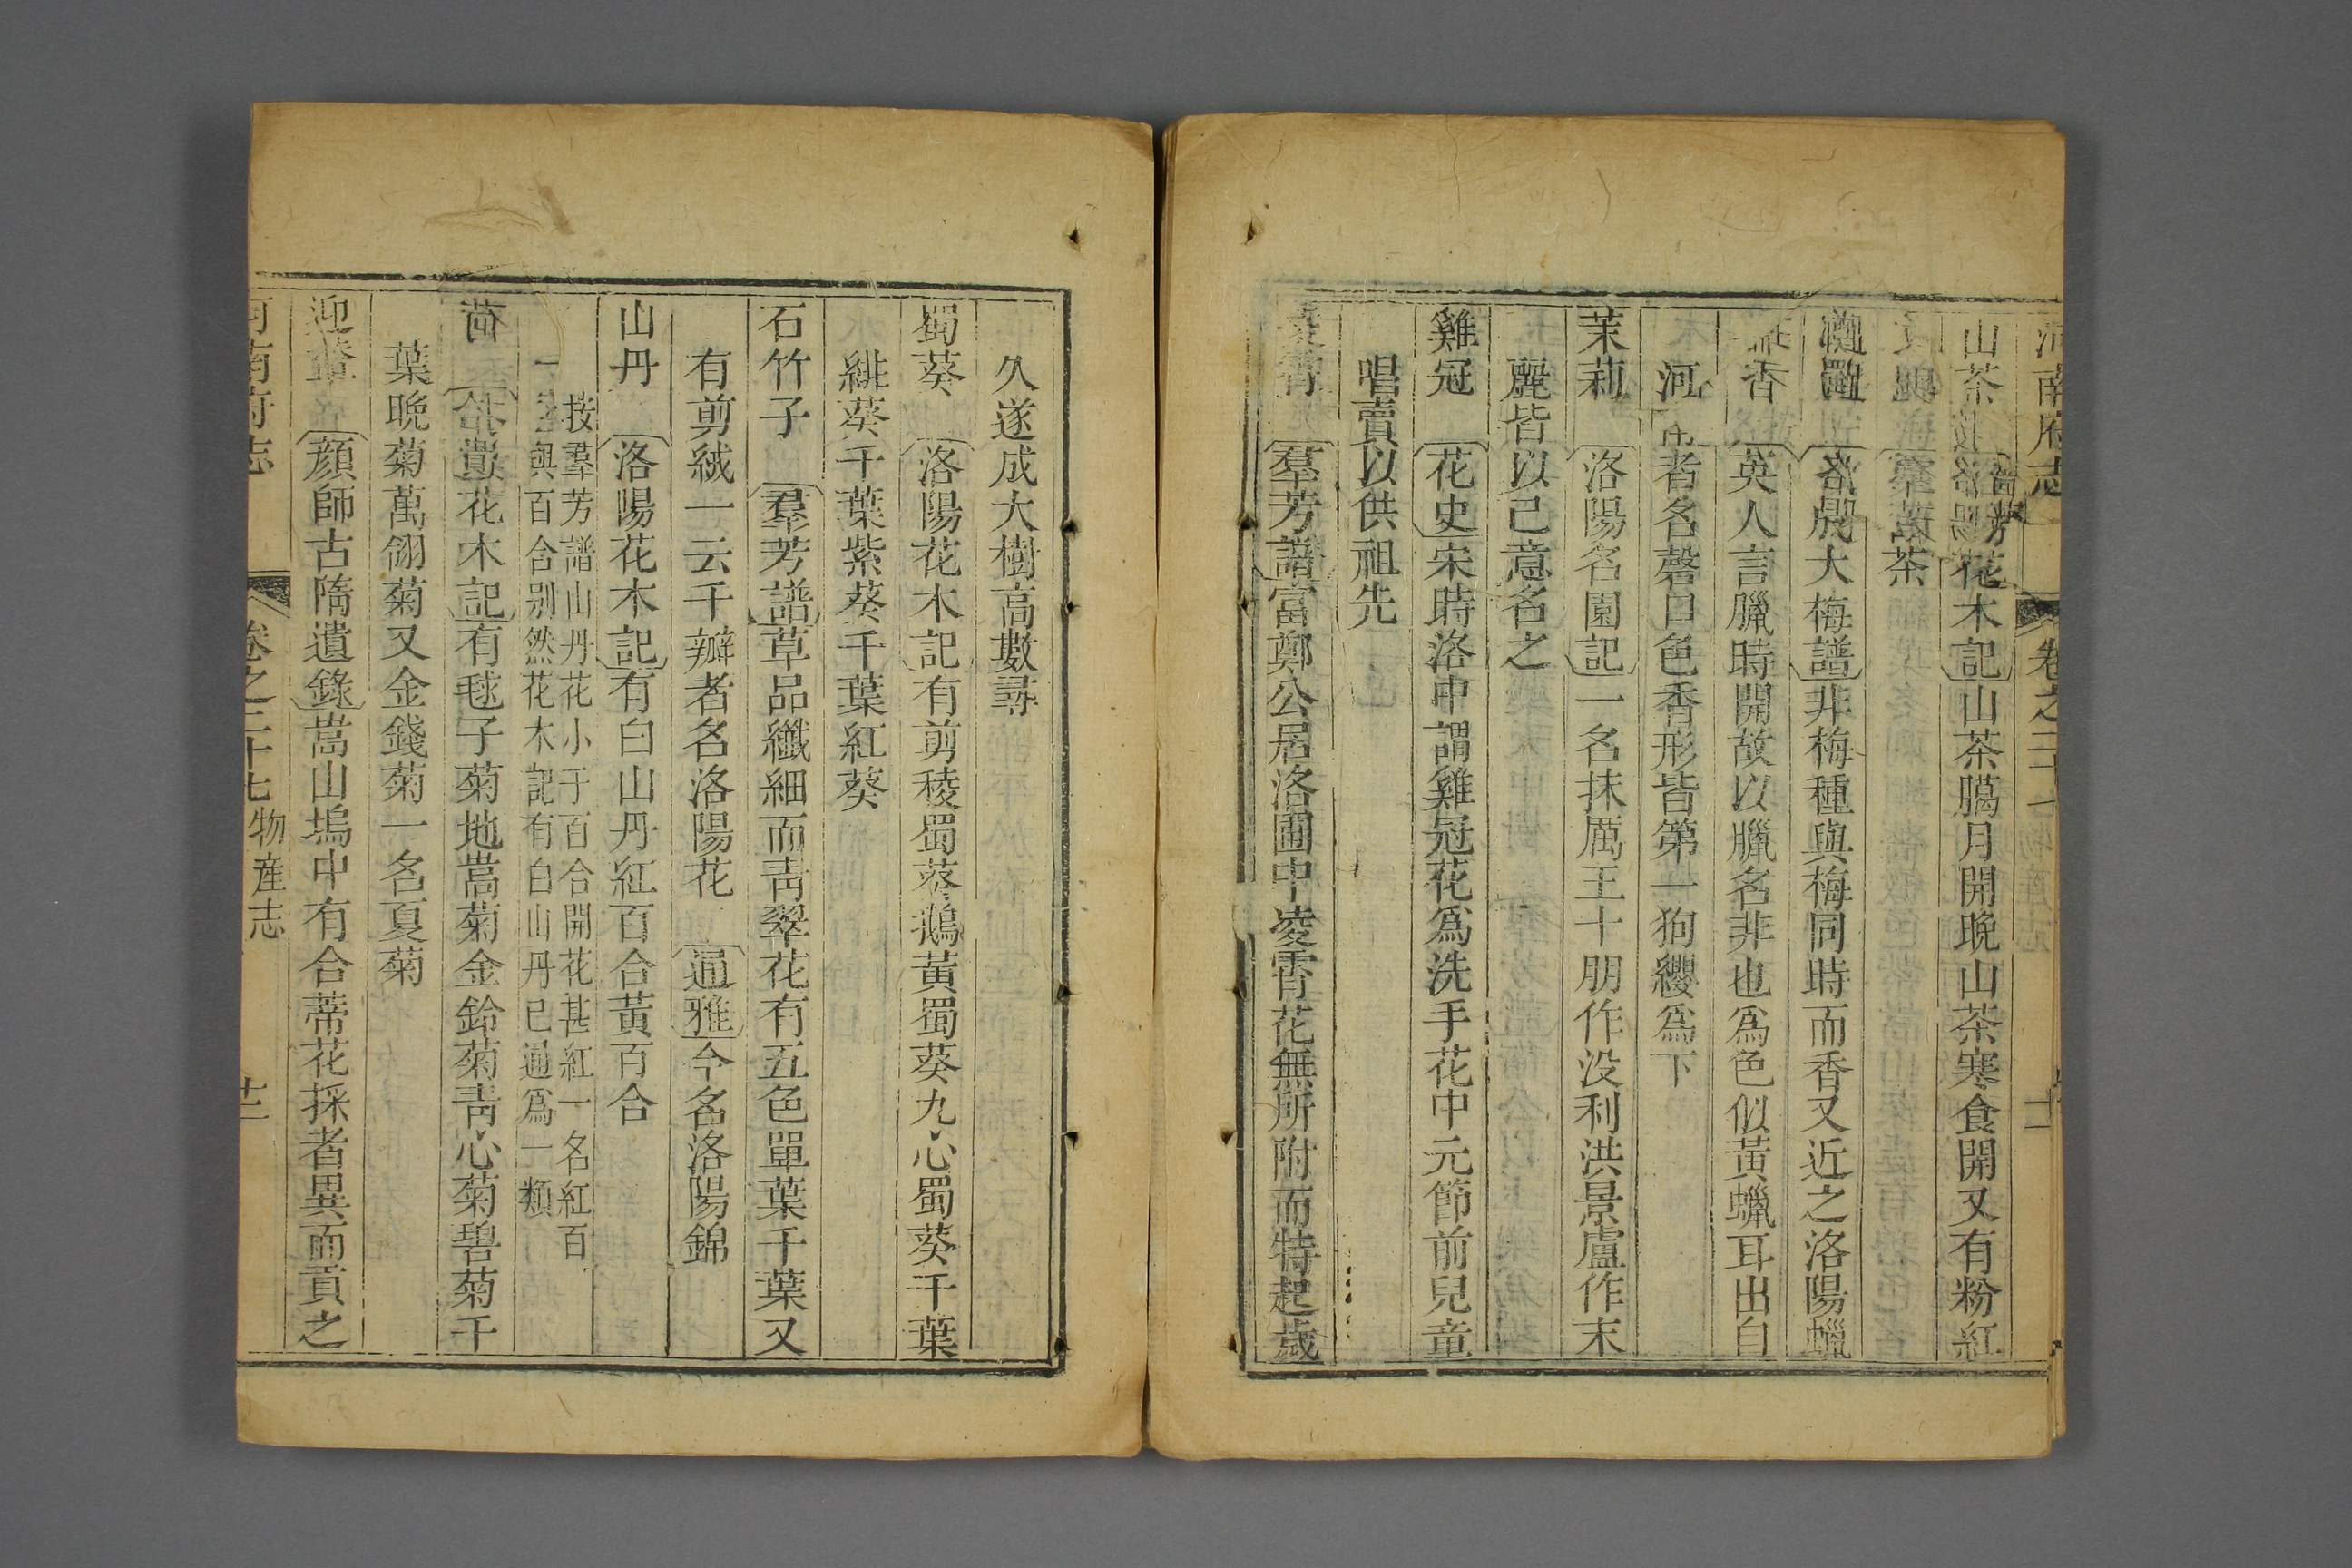 河南府志 卷之二十七
山茶 洛陽花木記山茶臈月開晚山茶寒食開又有粉紅
茶
大梅譜非梅種與梅同時而香又近之洛陽蠟
英人言臘時開故以臘名非也爲色似黃蠟耳出白
河者名磬口色香形皆第一狗纓爲下
茉莉 洛陽名園記一名抹厲王十朋作没利洪景盧作末
麗皆以己意名之
雞冠 花史宋時洛中謂雞冠花爲洗手花中元節前兒童
唱賣以供祖先
羣芳譜富鄭公居洛圃中凌霄花無所附而特起歲
久遂成大樹高數尋
蜀葵 洛陽花木記有剪稜蜀葵鵝黃蜀葵九心蜀葵千葉
緋葵千葉紫葵千葉紅葵
石竹子 羣芳譜草品纖細而靑翠花有五色單葉千葉又
有剪絨一云千瓣者名洛陽花 通雅今名洛陽錦
山丹 洛陽花木記有白山丹紅百合黃百合
按羣芳譜山丹花小于百合開花甚紅一名紅百
與百合别然花木記有白山丹已通爲一類
花木記有毬子菊地蒿菊金鈴菊靑心菊碧菊千
葉晚菊萬翎菊又金錢菊一名夏菊
迎輦 顔師古隋遺錄嵩山塢中有合蒂花採者異而貢之
河南府志 卷之二十七 物産志 廿二